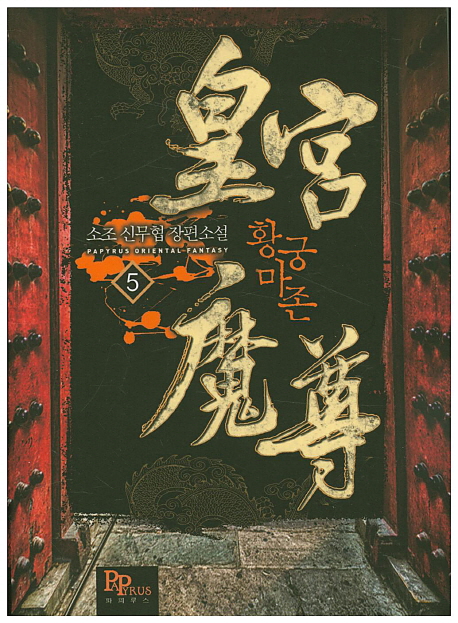 皇宮
황궁
마존
소조 신무협 장편소설
PAPYRUS ORIENTAL FANTASY
5
魔尊
PAPYRUS
파피루스